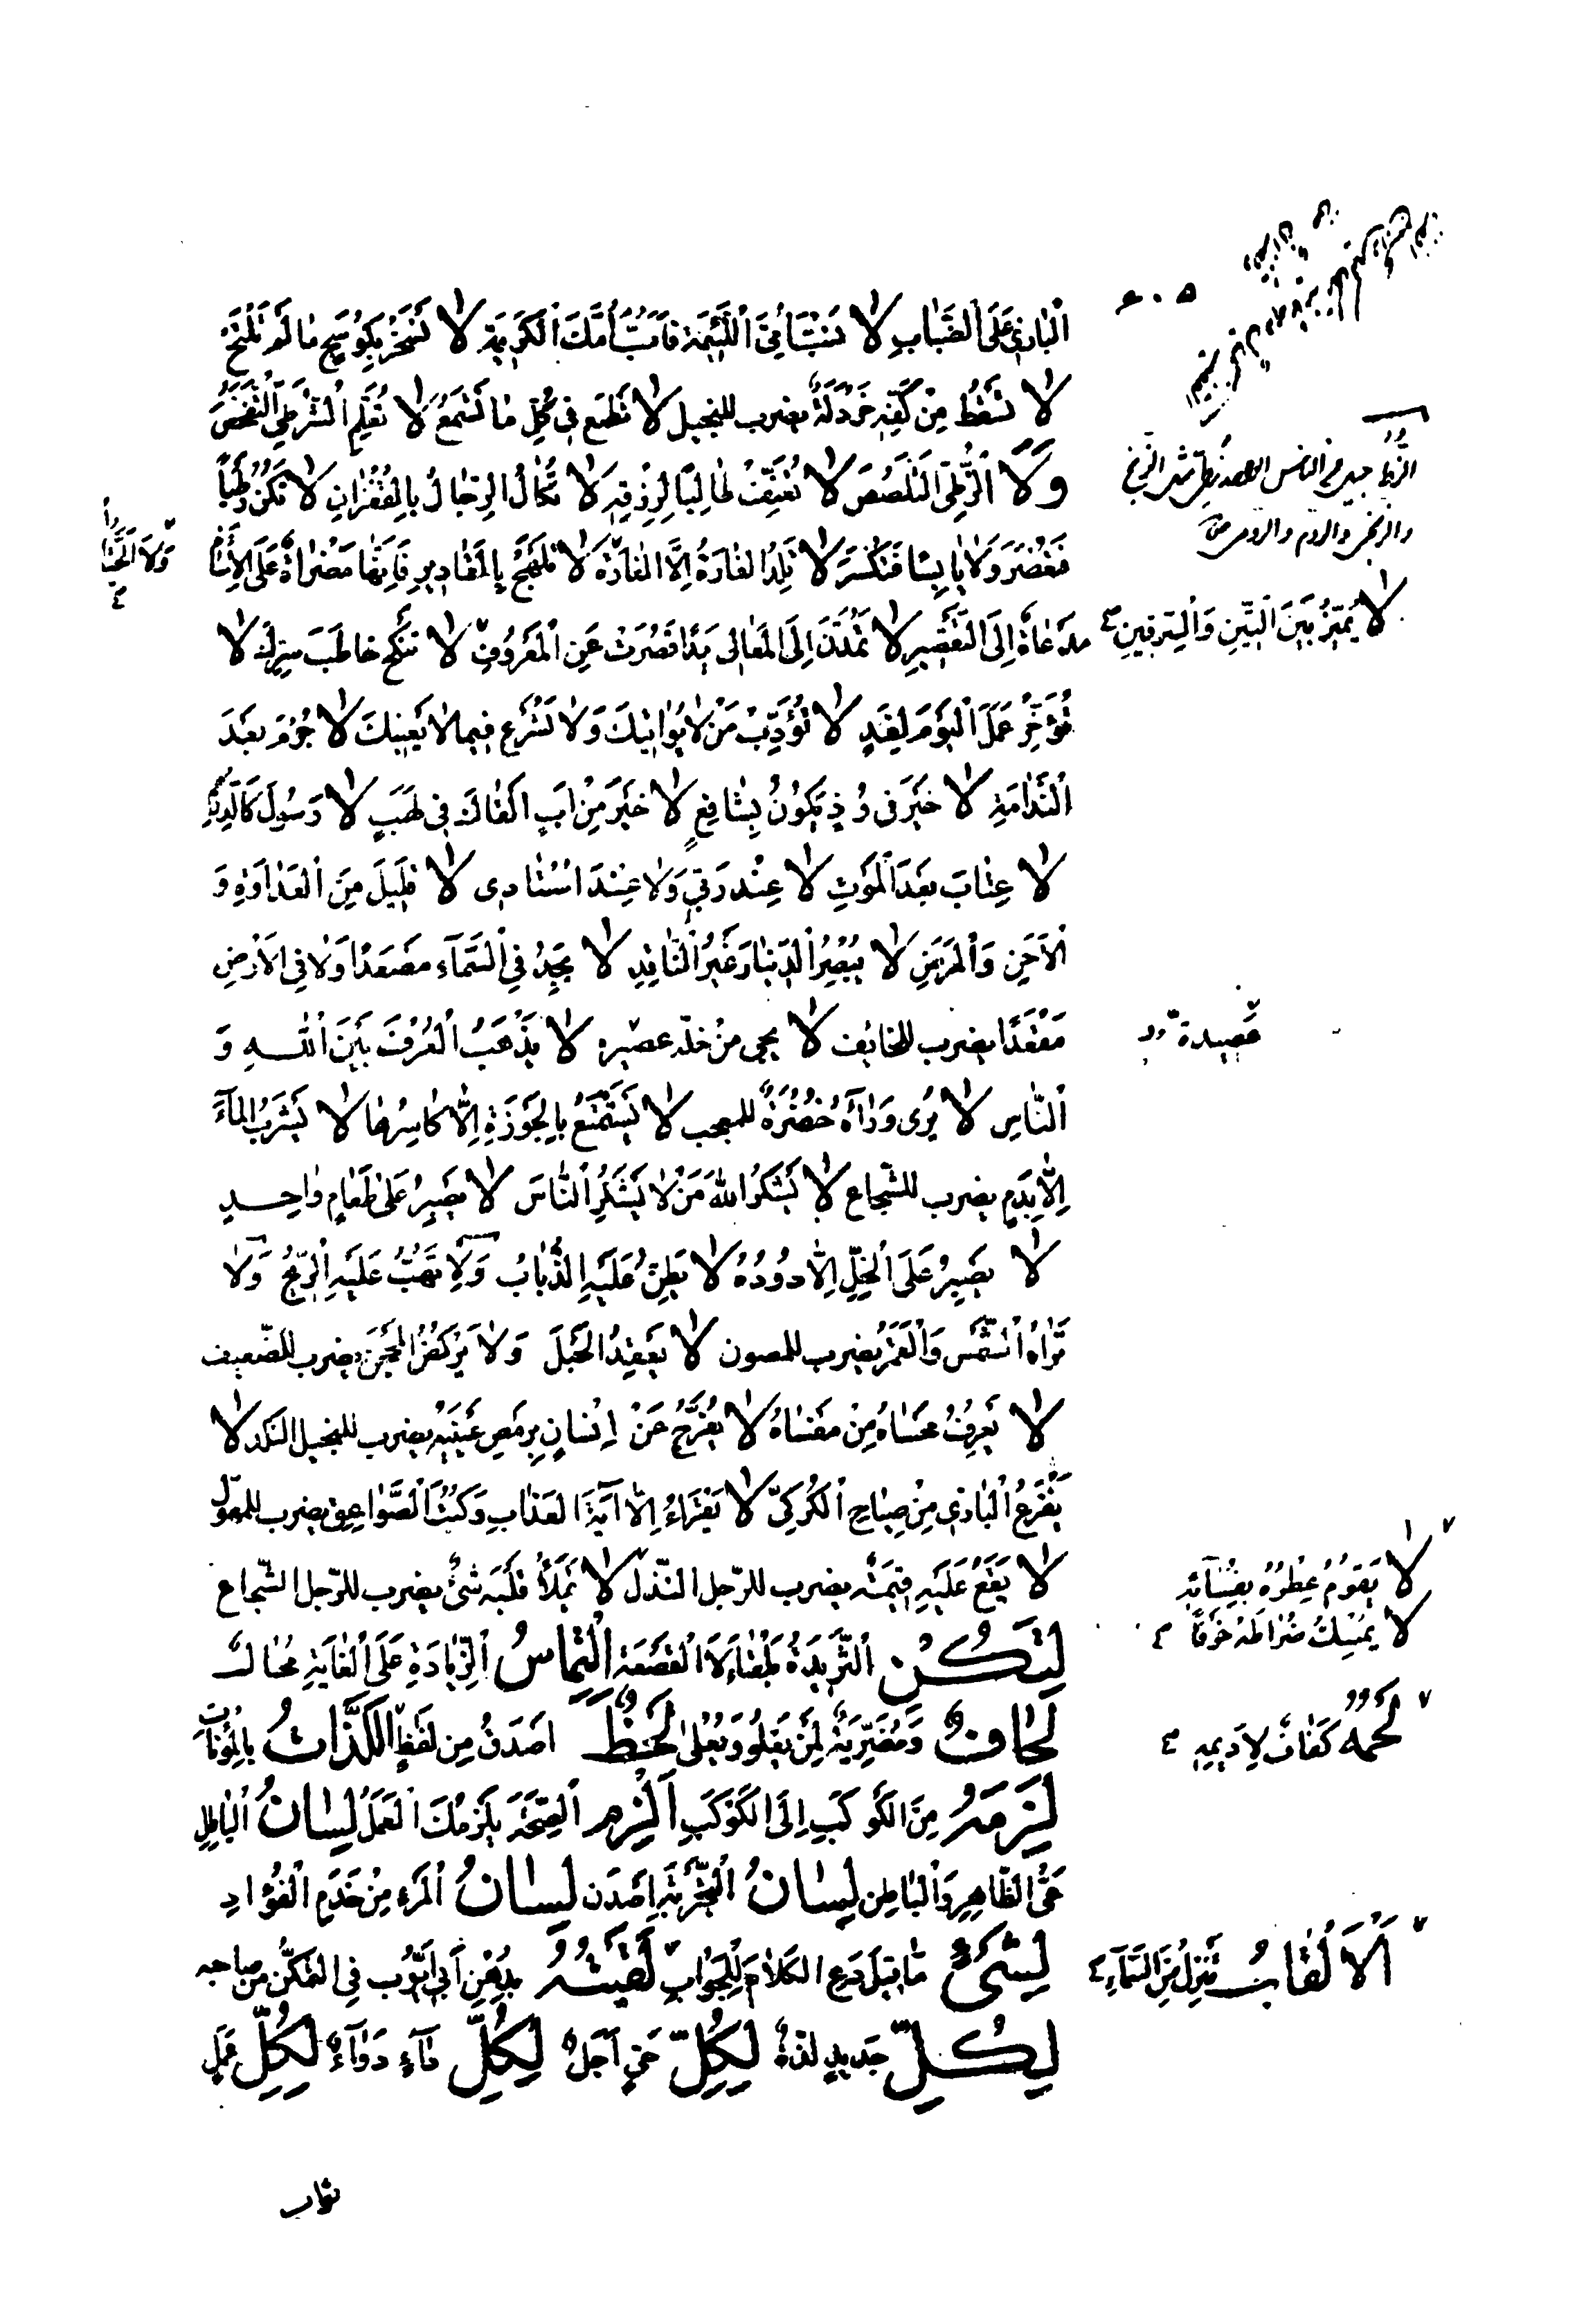 الْبازِيَ عَلَى الضَّبابِ لا تَسُبَّ أُمِّيَ اللَّئيمَةَ فَاَسُبَّ اُمَّكَ الْكَريمَةِ لا تَسْخَرْ بِكَوْسَجٍ مٰا لَمْ تَلْتَحْ
لا تَسْقُطُ مِنْ كَفِّهِ خَرْدَلَةٌ يضرب للبخيل لا تَطْمَعْ فى كُلِّ مٰا تَسْمَعُ لا تُعَلِّمِ الشُّرْطِيَّ التَّفَحُّصَ
وَلَا الزُّطِّيَّ التَّلَصُّصَ لا تُعَنِّفْ طٰالِبًا لِرِزْقِهِ لا تُكٰالُ الرِّجٰالُ بِالْقُفْزٰانِ لا تَكُنْ رَطْبًا
فَتُعْصَرَ وَلا يٰابِسًا فَتُكْسَرَ لا تَلِدُ الفٰارَةُ اِلَّا الفٰارَةَ لا تَلْهَجْ بِالمَقٰاديرِ فَاِنَّهٰا مَضْرٰاةٌ عَلَى الاِثْمِ
مَدْعٰاةٌ اِلَى التَّقْصيرِ لا تَمُدَّنَّ اِلَى المَعٰالى يَدًا قَصُرَتْ عَنِ الْمَعْرُوفِ لا تَنْكِحْ خاطَبَ سِرِّكَ لا
تُؤَخِّرْ عَمَلَ الْيَوْمِ لِغَدٍ لا تُؤَدِّبْ مَنْ لا يُوٰاتيكَ وَلا تَشْرَعْ فيما لا يَعْنيكَ لا جُرْمَ بَعْدَ
النَّدٰامَةِ لا خَيْرَ فى وُدٍّ يَكُونُ بِشٰافِعٍ لا خَيْرَ مِنْ اَبٍ اَلْقٰاكَ فى لَهَبٍ لا رَسُولَ كَالدِّرْهَمِ
لا عِتٰابَ بَعْدَ الْمَوْتِ لا عِنْدَ رَبّى وَلا عِنْدَ اُسْتٰادى لا قَليلَ مِنَ الْعَدٰاوَةِ وَ
الْاِحَنِ وَالْمَرَضِ لا يُبْصِرُ الدّينٰارَ غَيْرُ النّٰاقِدِ لا يَجِدُ فِى السَّمٰآءِ مَصْعَدًا وَلا فِى الْاَرْضِ
مَقْعَدًا يضرب للخائف لا يجى من خلّه عصيره لا يَذْهَبُ الْعُرْفُ بَيْنَ اللهِ وَ
النّٰاسِ لا يُرٰى وَرٰآءَهُ خُضْرَةٌ للمعجب لا يَسْتَمْتِعُ بِالْجَوْزَةِ اِلّا كاسِرُهٰا لا يَشْرَبُ المٰآءَ
اِلّا بِدَمٍ يضرب للشجاع لا يَشْكُرُ اللهَ مَنْ لا يَشْكُرُ النّٰاسَ لا يَصْبِرُ عَلىٰ طَعٰامٍ وٰاحِدٍ
لا يَصْبِرُ عَلَى الْخَلِّ اِلّا دُودُهُ لا يَطِنُّ عَلَيْهِ الذُّبٰابُ وَلا تَهُبُّ عَلَيْهِ الرّيحُ وَلا
تَرٰاهُ الشَّمْسُ وَالْقَمَرُ يضرب للمصون لا يَعْقِدُ الْحَبْلَ وَلا يَرْكُضُ المِحْجَنَ يضرب للضّعيف
لا يَعْرِفُ مَحْسٰاهُ مِنْ مَفْسٰاهُ لا يُفَرِّجُ عَنْ اِنْسانٍ بِرَمَصِ عَيْنَيْهِ يضرب للبخيل النكد لا
يَفْزَعُ الْبٰازِي مِنْ صِيٰاحِ الْكُرْكِيِّ لا يَقْرَاءُ اِلّا آيَةَ العَذٰابِ وَكُتُبَ الصَّوٰاعِقِ يضرب للمهوّل
لا يَقَعُ عَلَيْهِ قيمَةٌ يضرب للرّجل النّذل لا يَمْلَأُ قَلْبَهُ شَىْءٌ يضرب للرّجل الشّجاع
لِتَكُنِ الثَّريدَةُ بَلْقٰاءَ لَا القَصْعَةُ اِلْتِماسُ الزِّيٰادَةِ عَلَى الْغٰايَةِ مُحٰالٌ
لِحافٌ وَمُضَرِّيَةٌ لِمَنْ يَعْلُو وَيُعْلىٰ لَحْظٌ اصدَقُ مِن لَفْظٍ اللَّذّاتُ بِالْمَؤُنٰاتِ
لَزِمَهُ مِنَ الكَوْكَبِ اِلَى الكَوْكَبِ اَلْزِمِ الصِّحَّةَ يَلْزَمْكَ الْعَمَلُ لِسانُ الْبٰاطِلِ
عَىُّ الظّٰاهِرِ وَالْبٰاطِنِ لِسانُ التَّجْرِبَةِ اَصْدَقُ لِسانُ الْمَرْءِ مِنْ خَدَمِ الْفُؤٰادِ
لِشَىْءٍ مٰا قيلَ دَعِ الكَلاٰمَ لِلْجَوٰابِ لَقيتُهُ بِدُهْنِ اَبى اَيُّوبَ فى التمكّن من صاحبه
لِكُلِّ جَديدٍ لذةٌ لِكُلِّ حَىٍّ اَجَلٌ لِكُلِّ دٰآءٍ دَوٰآءٌ لِكُلِّ عَمَلٍ
ثواب
٦٠٥
الزُّطُّ جيل من الناس الواحد زطى مثل الزنج
والزنجى والروم والرومى ص
وَلَا
لا يُمَيِّزُ بَيْنَ التّينِ وَالسِّرقينِ
عصيدة
لا يَقومُ عِطْرُهُ بِفُسٰائِهِ
لا يُمْسِكُ ضُرٰاطَهُ خَرَقًا
لَحْمُهُ كَفٰافٌ لِاَديمِهِ
اَلْاَلْقابُ تَنْزِلُ مِنَ السَّمٰآءِ